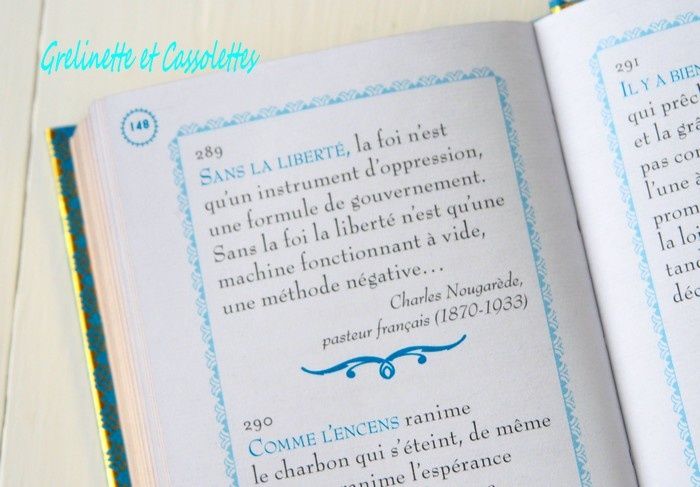 Grelinette et Cassolettes
148
289
SANS LA LIBERTÉ, la foi n'est
qu'un instrument d'oppression,
une formule de gouvernement.
Sans la foi la liberté n'est qu'une
machine fonctionnant à vide,
une méthode négative...
Charles Nougarède,
pasteur français (1870-1933)
290
COMME L'ENCENS ranime
le charbon qui s'éteint, de même
ranime l'espérance
291
IL Y A BIEN
qui prêc
et la grâ
pas con
l'une à
prom
la loi
tand
déc